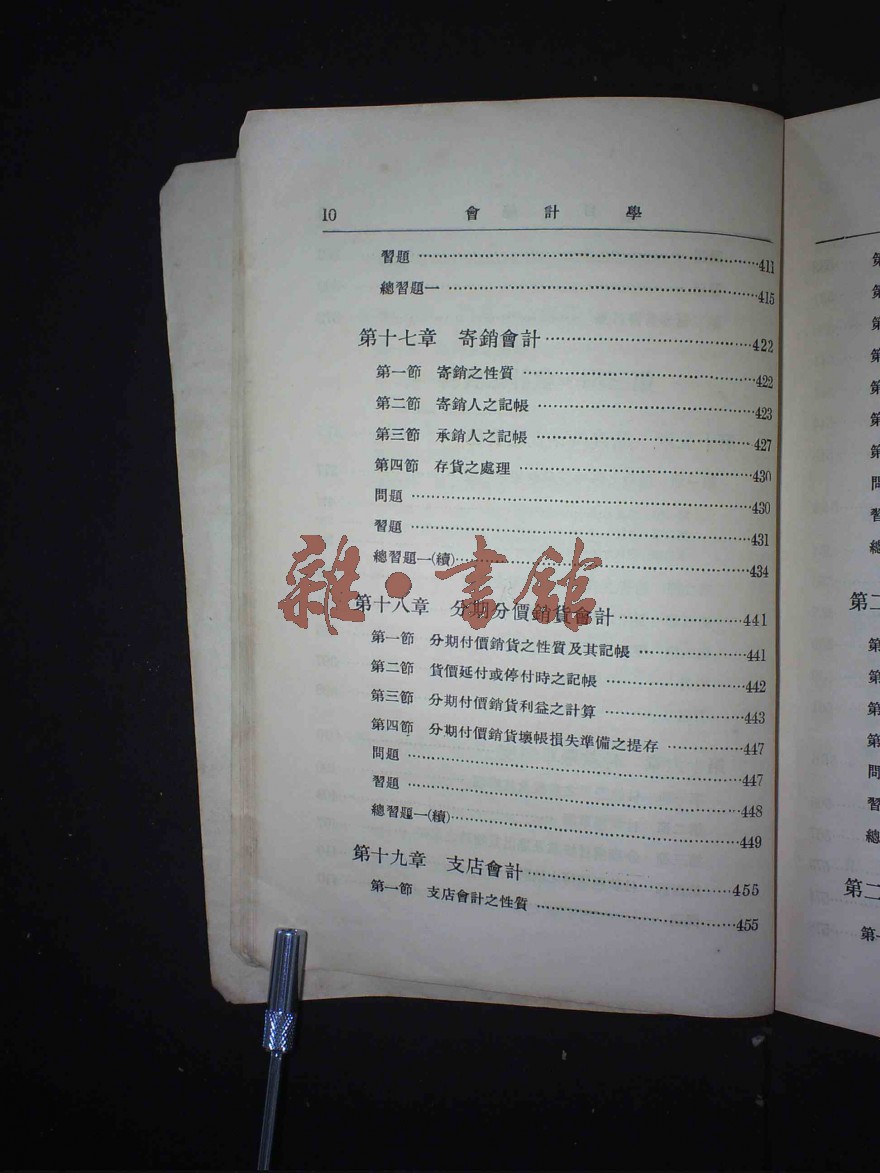 10 會計學
習題 411
總習題一 415
第十七章 寄銷會計 422
第一節 寄銷之性質 422
第二節 寄銷人之記帳 423
第三節 承銷人之記帳 427
第四節 存貨之處理 430
問題 430
習題 431
總習題一(續) 434
雜·書館
第十八章 分期分價銷貨會計 441
第一節 分期付價銷貨之性質及其記帳 441
第二節 貨價延付或停付時之記帳 442
第三節 分期付價銷貨利益之計算 443
第四節 分期付價銷貨壞帳損失準備之提存 447
問題 447
習題 448
總習題一(續) 449
第十九章 支店會計 455
第一節 支店會計之性質 455